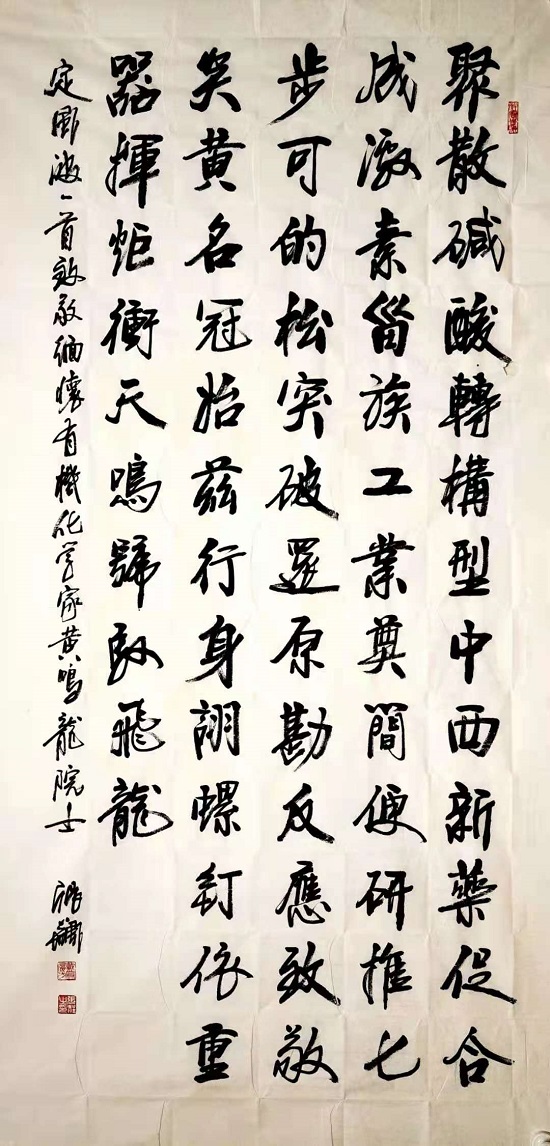 聚散碱酸轉構型中西新藥促合
成激素甾族工業奠簡便研推七
步可的松突破還原勘反應致敬
矣黄名冠始兹行身詡螺釘依重
器揮炬衝天鳴號馭飛龍
定風波一首致敬缅懷有機化学家黄鳴龍院士